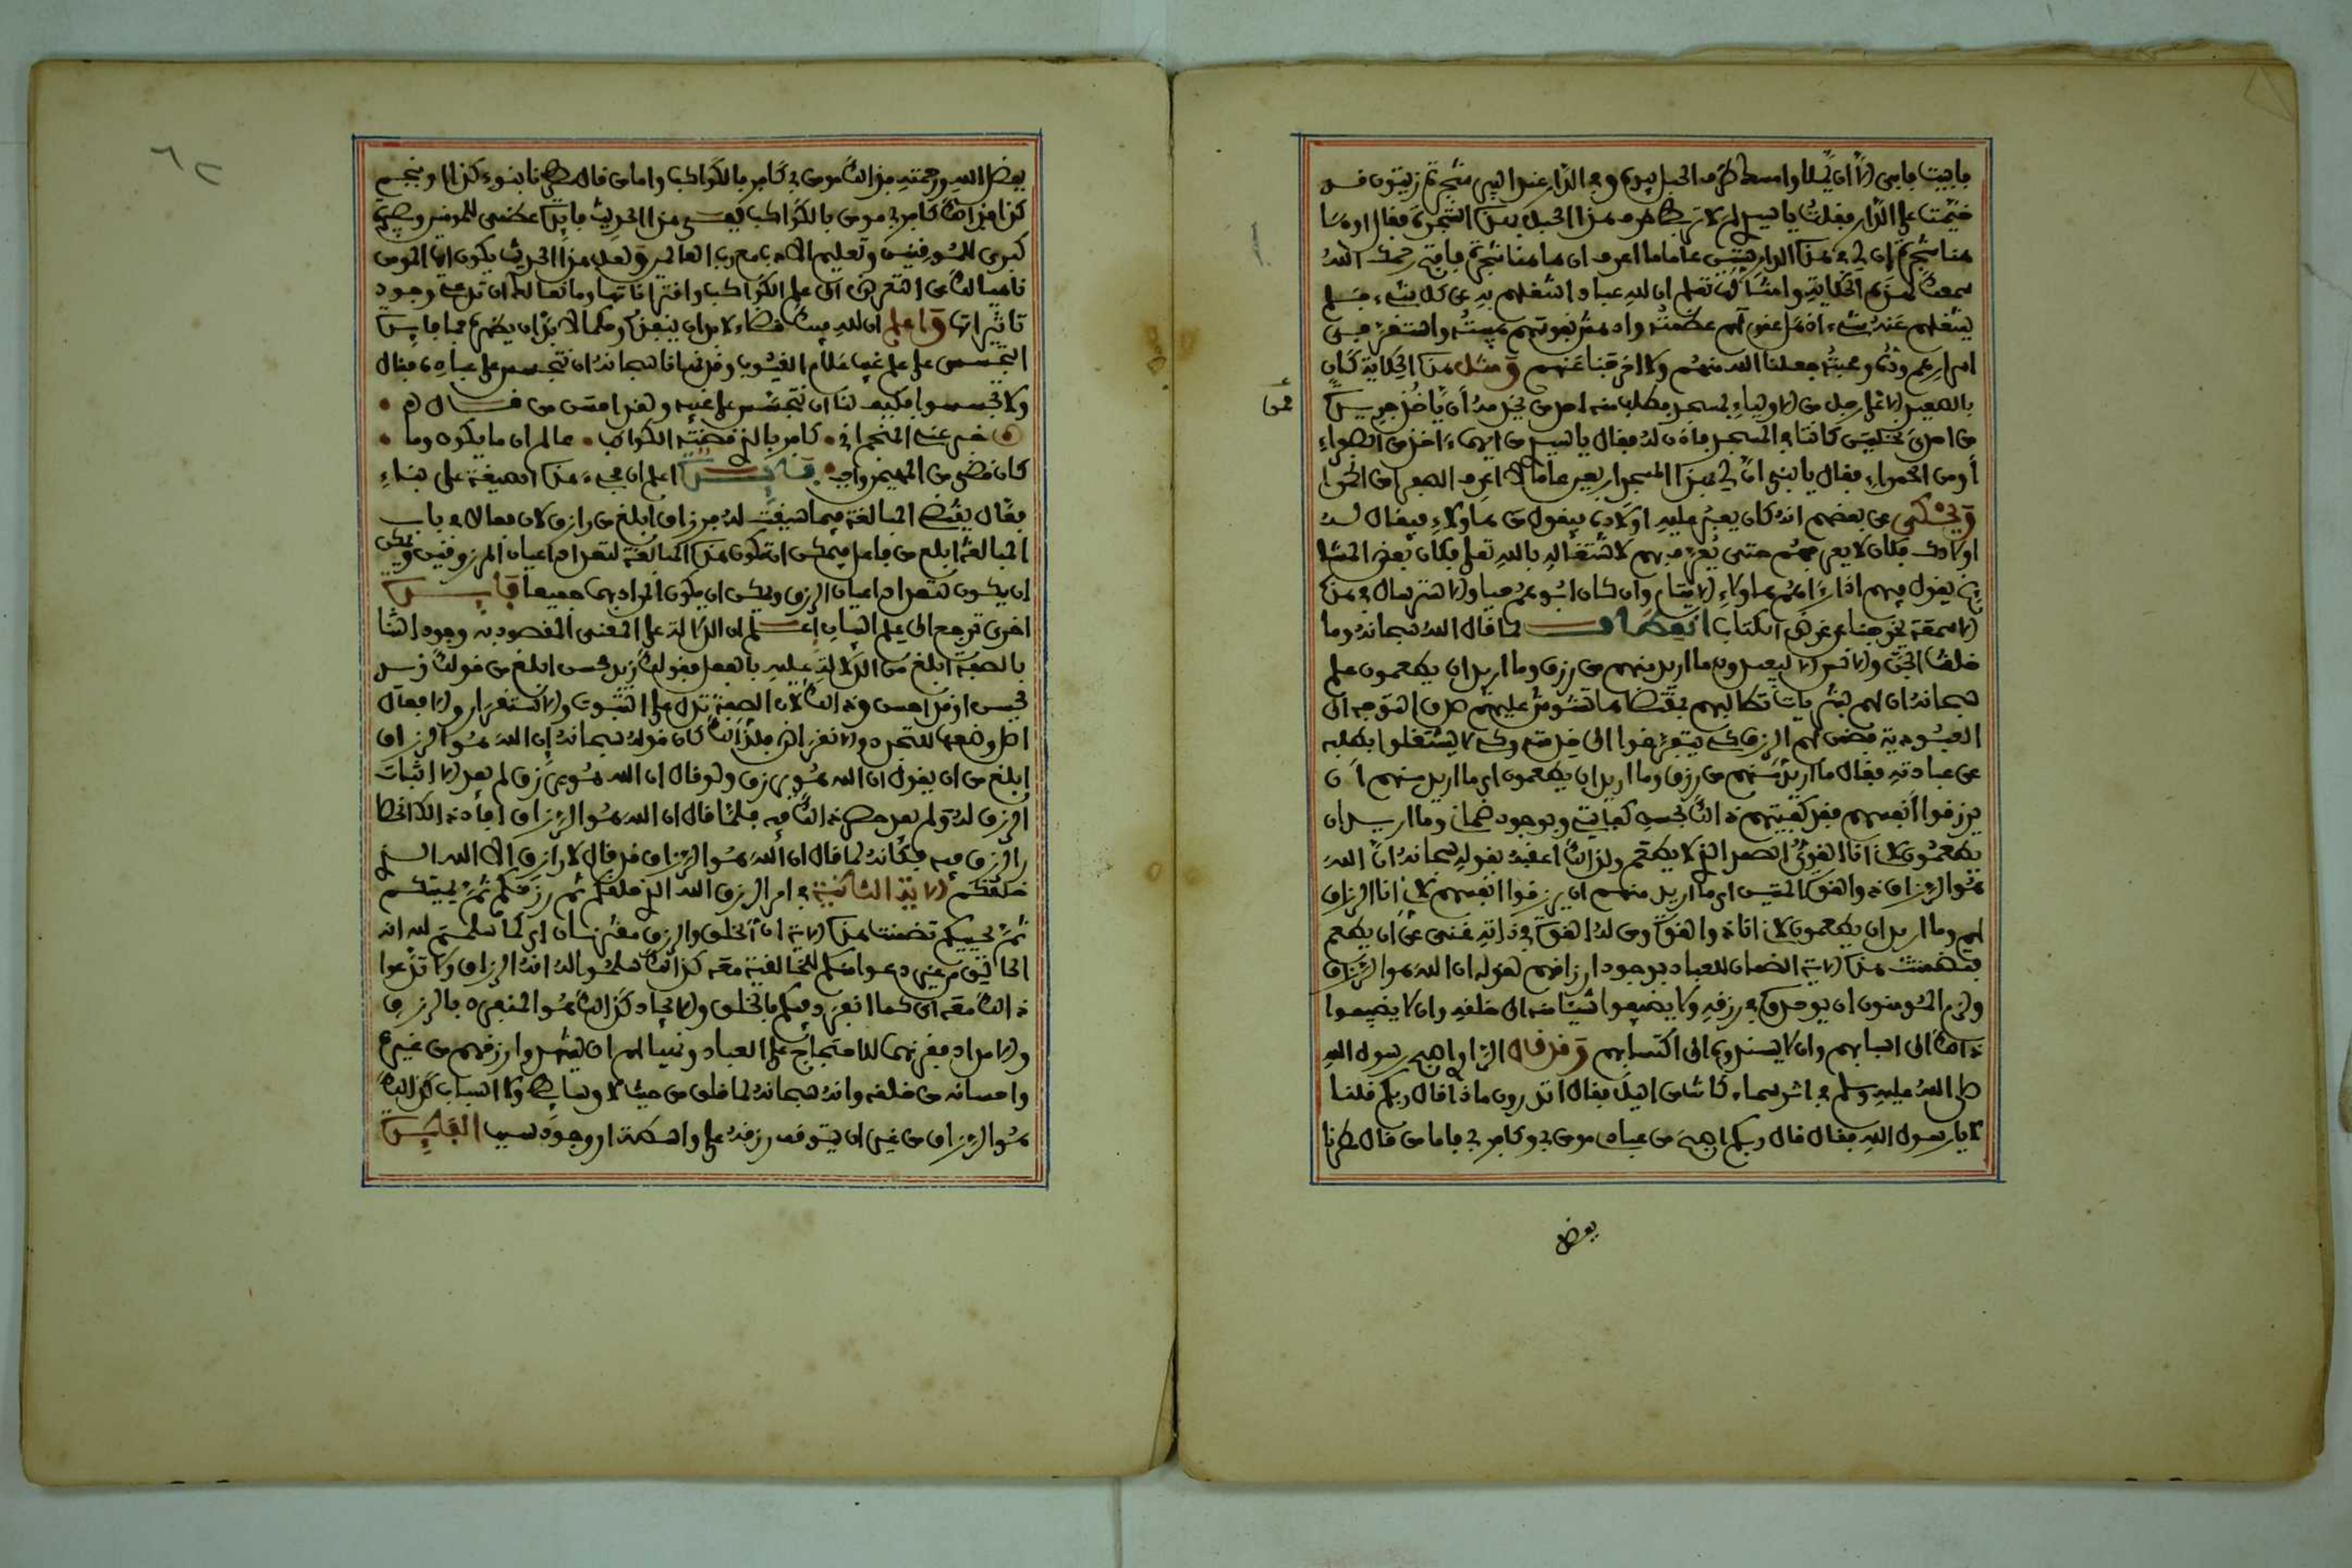 فأبيت فأبى إلا أن يسلك وأبسط طرف الحبل بيده وفي الدار عندا اليهم شجرة زيتون قد
خيمت على الدار فقلت يا سيدي لم لا تربط طرف هذا الحبل بهذه الشجرة فقال أو ها
هنا شجرة إن لي في هذه الدار ستين عاما ما أعرف أن ها هنا شجرة فافتح رحمك الله
سمعك لهذه الحكاية وأمثالها تعلم أن لله عبادا أشغلهم به عن كل شيء فلم
يشغلهم عنه شيء أذهل عقولهم عظمته وأدهش نفوسهم هيبته واستقر في
أسرارهم وده ومحبته جعلنا الله منهم ولا أخرجنا عنهم ومثل هذه الحكاية كان
بالصعيد الأعلى رجل من الأولياء بمسجد فطلب منه أحد من يخدمه أن يأخذ جريدة
من إحدى نخلتين كانتا في المسجد فأذن له فقال يا سيدي من أيهما آخذ من الصفراء
أو من الحمراء فقال يا بني أن لي بهذا المسجد أربعين عاما لا أعرف الصفراء من الحمراء
ويحكى عن بعضهم أنه كان يعبر عليه أولاده فيقول من هؤلاء فيقال له
أولادك فكان لا يعرفهم حتى يعرف بهم لاشتغاله بالله تعالى وكان بعض المشا
يخ يقول فيهم إذا رآهم هؤلاء الأيتام وإن كان أبوهم حيا والاسترسال في هذه
الأسمعة يخرجنا عن غرض الكتاب انعطاف لما قال الله سبحانه وما
خلقت الجن والإنس إلا ليعبدون ما أريد منهم من رزق وما أريد أن يطعمون علم
سبحانه أن لهم بشريات تطالبهم بمقتضاها تشوش عليهم صدق التوجه إلى
العبودية فضمن لهم الرزق كي يتفرغوا إلى خدمته وكي لا يشتغلوا بطلبه
عن عبادته فقال ما أريد منهم من رزق وما أريد أن يطعمون أي ما أريد منهم أن
يرزقوا أنفسهم فقد كفيتهم ذلك بحسن كفايتي وبوجود ضماني وما أريد أن
يطعمون لأني أنا القوي الصمد الذي لا يطعم ولذلك أعقبه بقوله سبحانه إن الله
هو الرزاق ذو القوة المتين أي ما أريد منهم أن يرزقوا أنفسهم لأني أنا الرزاق
لهم وما أريد أن يطعمون لأني أنا ذو القوة ومن له القوة في ذاته غني عن أن يطعم
فتضمنت هذه الآية الضمان للعباد بوجود أرزاقهم لقوله إن الله هو الرزاق
ولزم المؤمنون أن يوحدوه في رزقه ولا يضيفوا شيئا منه إلى خلقه وأن لا يضيفوا
ذلك إلى أسبابهم وأن لا يسندوه إلى اكتسابهم وقد قال الراوي أصبح رسول الله
صلى الله عليه وسلم في اثر سماء كانت من الليل فقال أتدرون ماذا قال ربكم قلنا
لا يا رسول الله فقال قال ربكم أصبح من عبادي مؤمن بي وكافر بي فأما من قال مطرنا
بفضل
بفضل الله ورحمته فذلك مؤمن بي كافر بالكواكب وأما من قال مطرنا بنوء كذا أو بنجم
كذا فذلك كافر بي مؤمن بالكواكب ففي هذا الحديث فائدة عظمى للمؤمنين وبصيرة
كبرى للموقنين وتعليم الأدب مع رب العالمين ولعل هذا الحديث يكون أيها المؤمن
ناهيا لك عن التعرض إلى علم الكواكب واقتراناتها ومانعا لك أن تدعي وجود
تأثيراتها واعلم أن لله فيك قضاء لا بد أن ينفذه وحكما لا بد أن يظهره فما فائدة
التجسس على علم غيب علام الغيوب وقد نهانا سبحانه أن نتجسس على عباده فقال
ولا تجسسوا فكيف لنا أن نتجسس على غيبه ولقد أحسن من قال
خبر عني المنجم أني كافر بالذي قضته الكواكب عالم أن ما يكون وما
كان قضى من المهيمن واجب فائدة اعلم أن مجيء هذه الصيغة على بناء
فعال يقتضي المبالغة فيما سيقت له فرزاق أبلغ من رازق لأن فعال في باب
المبالغة أبلغ من فاعل فيمكن أن تكون هذه المبالغة لتعداد أعيان المرزوقين ويمكن
أن يكون لتعداد أعيان الرزق ويمكن أن يكون المراد بهما جميعا فائدة
أخرى ترجع إلى علم البيان اعلم أن الدلالة على المعنى المقصود به وجود الثنا
بالصفة أبلغ من الدلالة عليه بالفعل فقولك زيد محسن أبلغ من قولك زيد
يحسن أو قد أحسن وذلك لأن الصفة تدل على الثبوت والاستقرار والأفعال
أصل وضعها للتجدد والانقراض فلذلك كان قوله سبحانه إن الله هو الرزاق
أبلغ من أن يقول إن الله هو يرزق ولو قال إن الله هو يرزق لم يفد إلا إثبات
الرزق له ولم يفد حصر ذلك فيه فلما قال إن الله هو الرزاق أفاد ذلك انحصا
ر الرزق فيه فكأنه لما قال إن الله هو الرزاق قد قال لا رازق إلا الله الذي
خلقكم الآية الثانية في أمر الرزق الله الذي خلقكم ثم رزقكم ثم يميتكم
ثم يحييكم تضمنت هذه الآية أن الخلق والرزق مقترنان أي كما سلمتم لله أنه
الخالق من غير دعوى منكم للخالقية معه كذلك سلموا له أنه الرزاق ولا تدعوا
ذلك معه أي كما انفرد فيكم بالخلق والإيجاد كذلك هو المنفرد بالرزق
والإمداد فقرنهما للاحتجاج على العباد ونهيا لهم أن يشهدوا رزقهم من غيره
وإحسانه من خلقه وأنه سبحانه كما خلق من حيث لا وسائط ولا أسباب كذلك
هو الرزاق من غير أن يتوقف رزقه على واسطة أو وجود سبب الفائدة